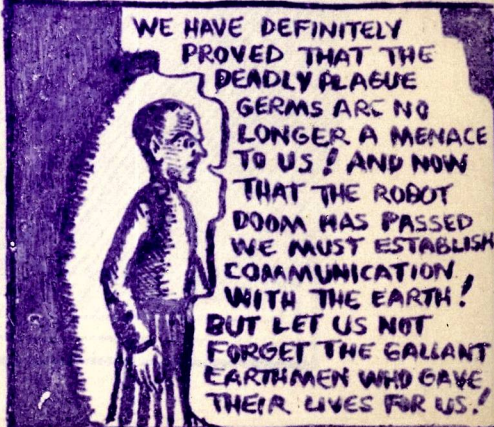 WE HAVE DEFINITELY
PROVED THAT THE
DEADLY PLAGUE
GERMS ARE NO
LONGER A MENACE
TO US! AND NOW
THAT THE ROBOT
DOOM HAS PASSED
WE MUST ESTABLISH
COMMUNICATION
WITH THE EARTH!
BUT LET US NOT
FORGET THE GALLANT
EARTHMEN WHO GAVE
THEIR LIVES FOR US!